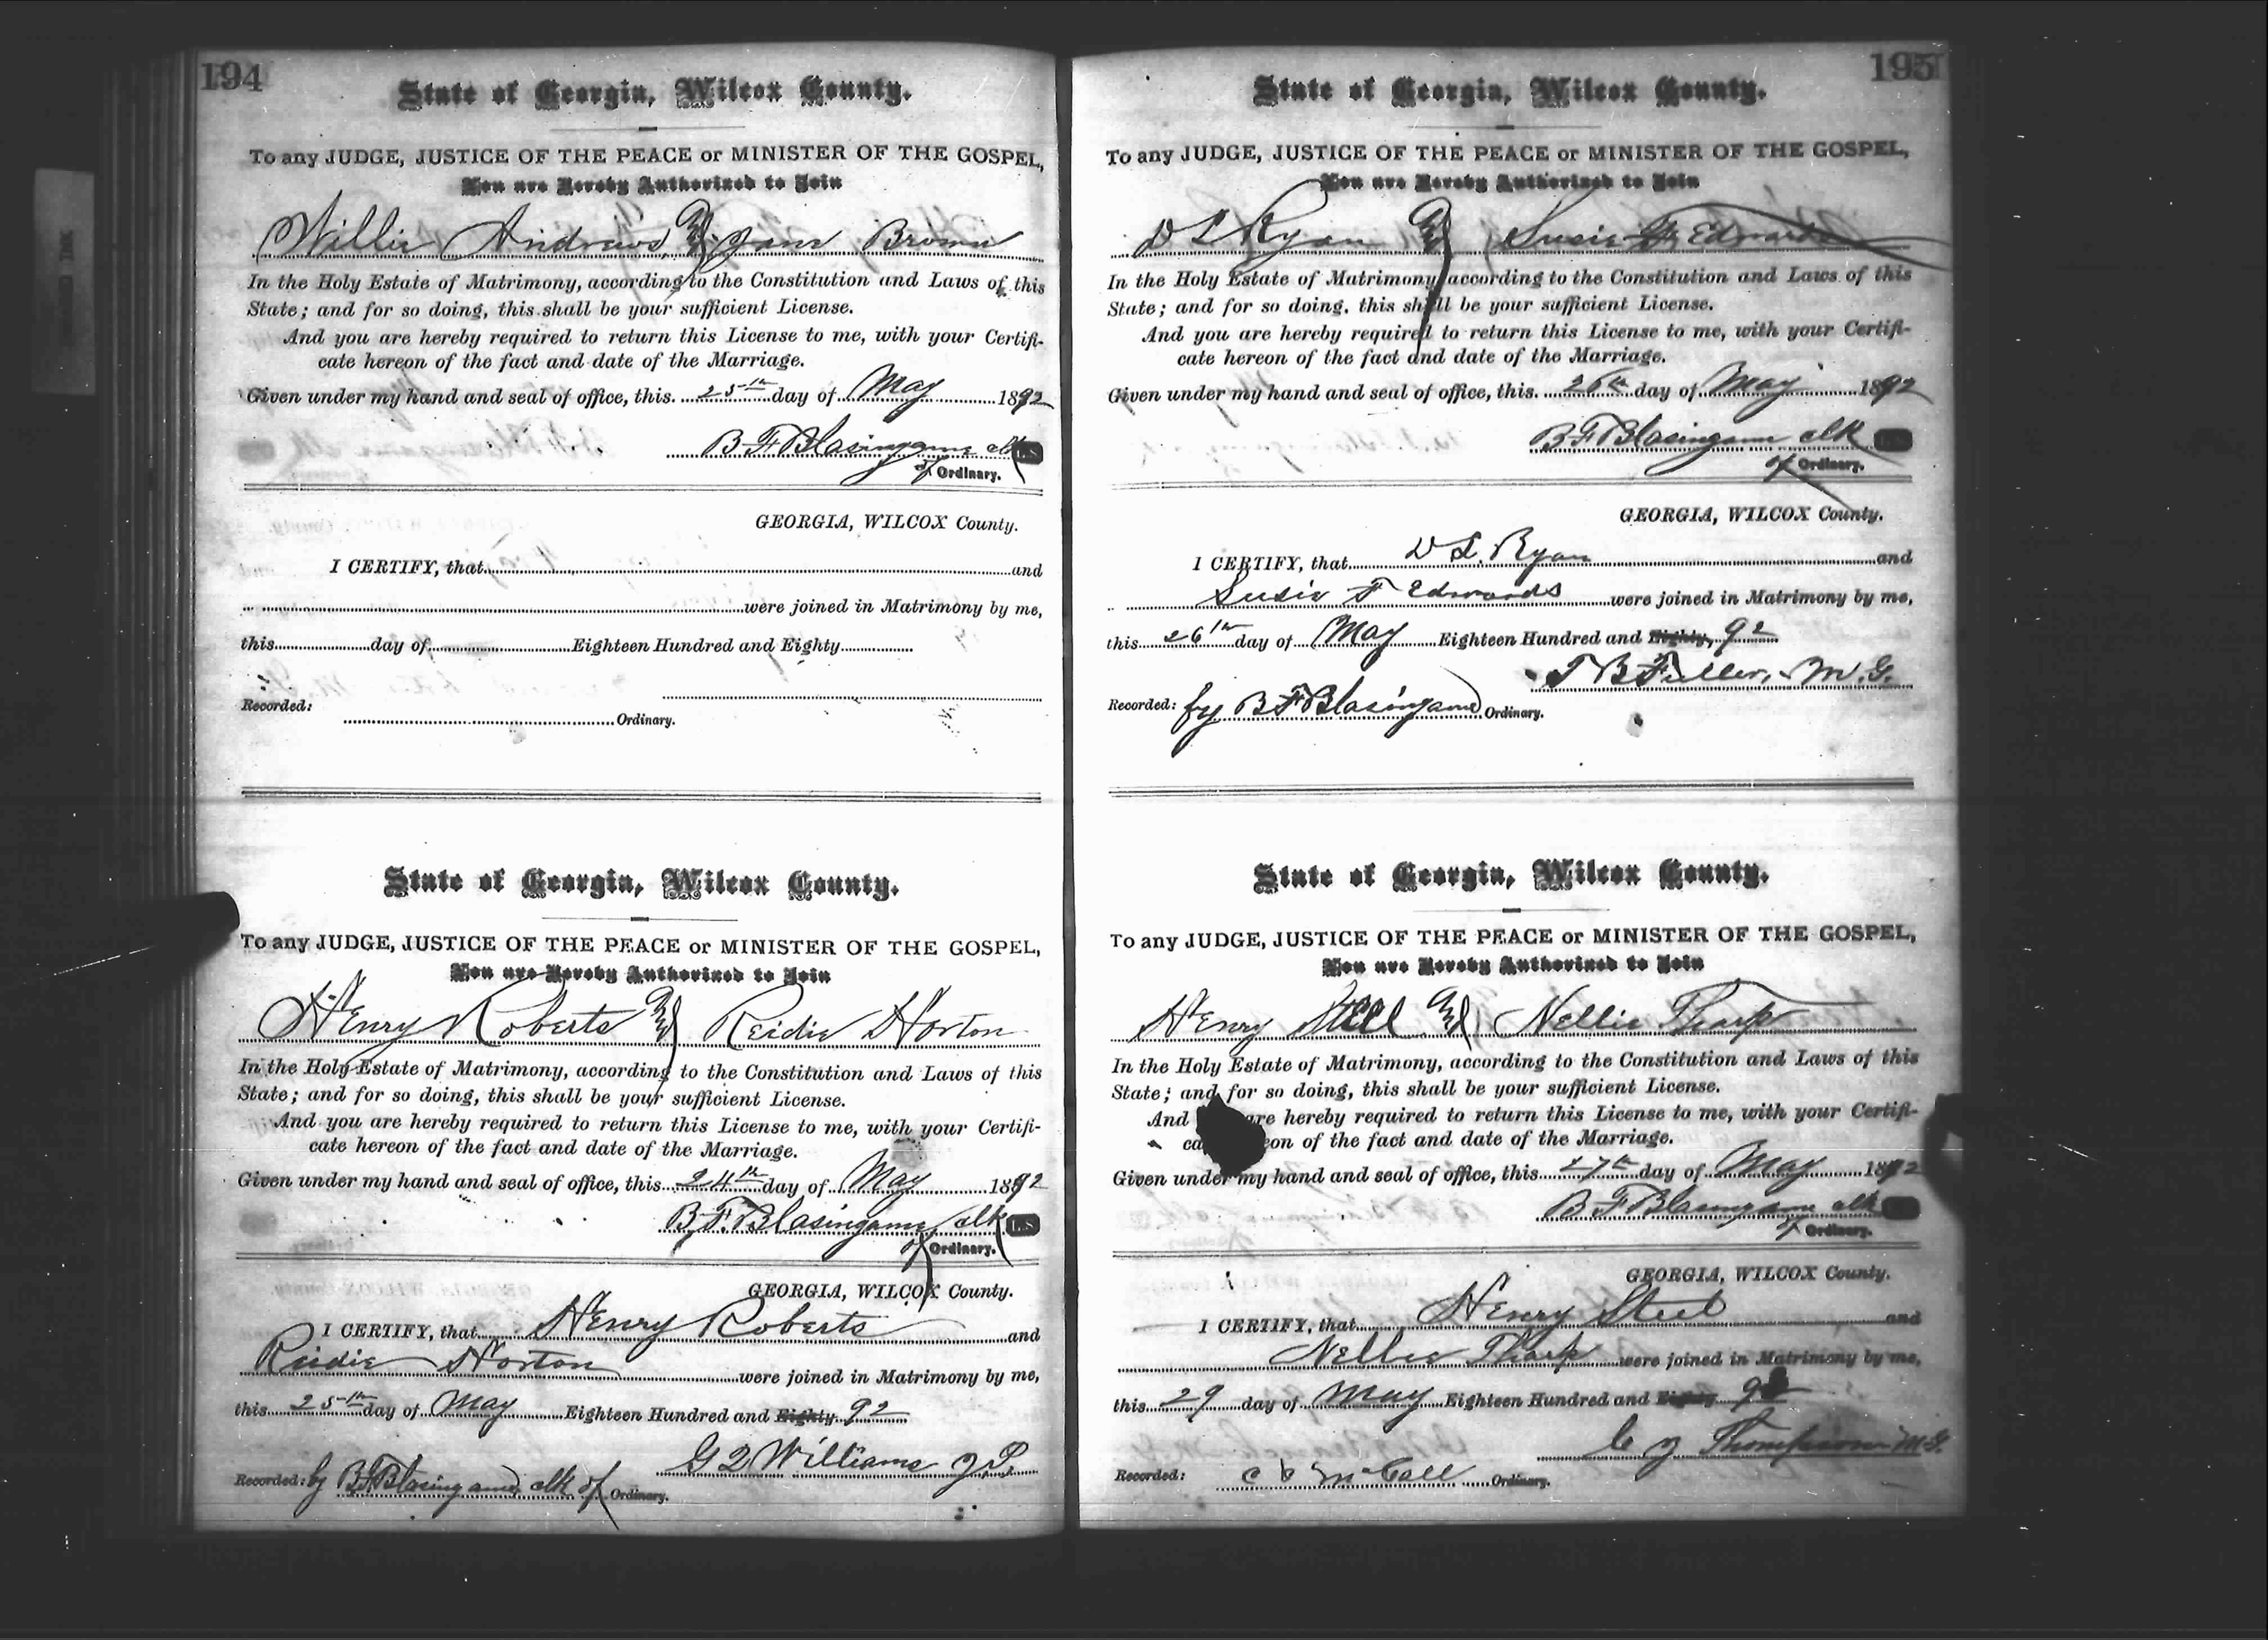 194
State of Georgia, Wilcox County.
To any JUDGE, JUSTICE OF THE PEACE or MINISTER OF THE GOSPEL,
You are Hereby Authorized to Join
Willie Andrews and Jane Brown
In the Holy Estate of Matrimony, according to the Constitution and Laws of this
State; and for so doing, this shall be your sufficient License.
And you are hereby required to return this License to me, with your Certifi-
cate hereon of the fact and date of the Marriage.
Given under my hand and seal of office, this 25th day of May 1892
B F Blasingame clk L.S
of Ordinary.
GEORGIA, WILCOX County.
I CERTIFY, that and
were joined in Matrimony by me,
this day of Eighteen Hundred and Eighty
Recorded:
Ordinary.
State of Georgia, Wilcox County.
To any JUDGE, JUSTICE OF THE PEACE or MINISTER OF THE GOSPEL,
You are Hereby Authorized to Join
Henry Roberts and Reidie Horton
In the Holy Estate of Matrimony, according to the Constitution and Laws of this
State; and for so doing, this shall be your sufficient License.
And you are hereby required to return this License to me, with your Certifi-
cate hereon of the fact and date of the Marriage.
Given under my hand and seal of office, this 24th day of May 1892
B. F. Blasingame, clk L.S
of Ordinary.
GEORGIA, WILCOX County.
I CERTIFY, that Henry Roberts and
Reidie Horton were joined in Matrimony by me,
this 25th day of May Eighteen Hundred and Eighty 92
G Q Williams J.P.
Recorded: by B F Blasingame clk of Ordinary.
195
State of Georgia, Wilcox County.
To any JUDGE, JUSTICE OF THE PEACE or MINISTER OF THE GOSPEL,
You are Hereby Authorized to Join
D L Ryan and Susie F Edwards
In the Holy Estate of Matrimony, according to the Constitution and Laws of this
State; and for so doing, this shall be your sufficient License.
And you are hereby required to return this License to me, with your Certifi-
cate hereon of the fact and date of the Marriage.
Given under my hand and seal of office, this 26th day of May 1892
B F Blasingame clk
of Ordinary.
GEORGIA, WILCOX County.
I CERTIFY, that D L. Ryan and
Susie F Edwards were joined in Matrimony by me,
this 26th day of May Eighteen Hundred and Eighty, 92
T B Fuller, M.G.
Recorded: by B F Blasingame Ordinary.
State of Georgia, Wilcox County.
To any JUDGE, JUSTICE OF THE PEACE or MINISTER OF THE GOSPEL,
You are Hereby Authorized to Join
Henry Steel and Nellie Tharp
In the Holy Estate of Matrimony, according to the Constitution and Laws of this
State; and for so doing, this shall be your sufficient License.
And are hereby required to return this License to me, with your Certifi-
on of the fact and date of the Marriage.
Given under my hand and seal of office, this 27th day of May 1892
B F Blasingame clk
of Ordinary.
GEORGIA, WILCOX County.
I CERTIFY, that Henry Steel and
Nellie Tharp were joined in Matrimony by me,
this 29 day of May Eighteen Hundred and Eighty 92
Thompson M.G.
Recorded: McCall Ordinary.